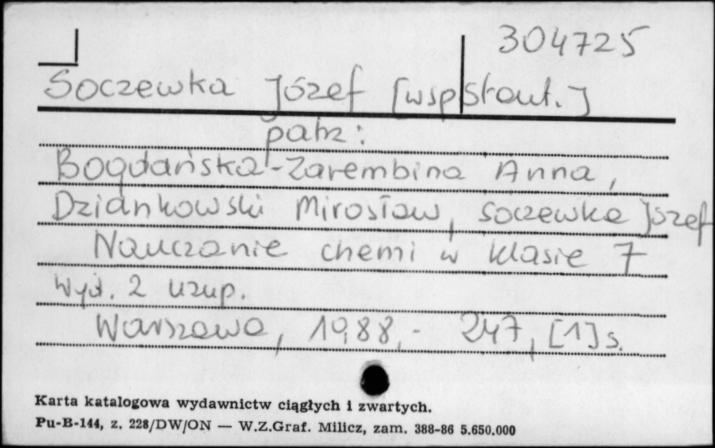 304725
Soczewka Józef [wspłaut.]
patrz:
Bogdańska-Zarembina Anna,
Dziankowski Mirosław, Soczewka Józef
Nauczanie chemi w klasie 7
Wyd. 2 uzup.
Warszawa, 1988.- 247, [1] s.
Karta katalogowa wydawnictw ciągłych i zwartych.
Pu-B-144, z. 228/DW/ON — W.Z.Graf. Milicz, zam. 388-86 5.650.000